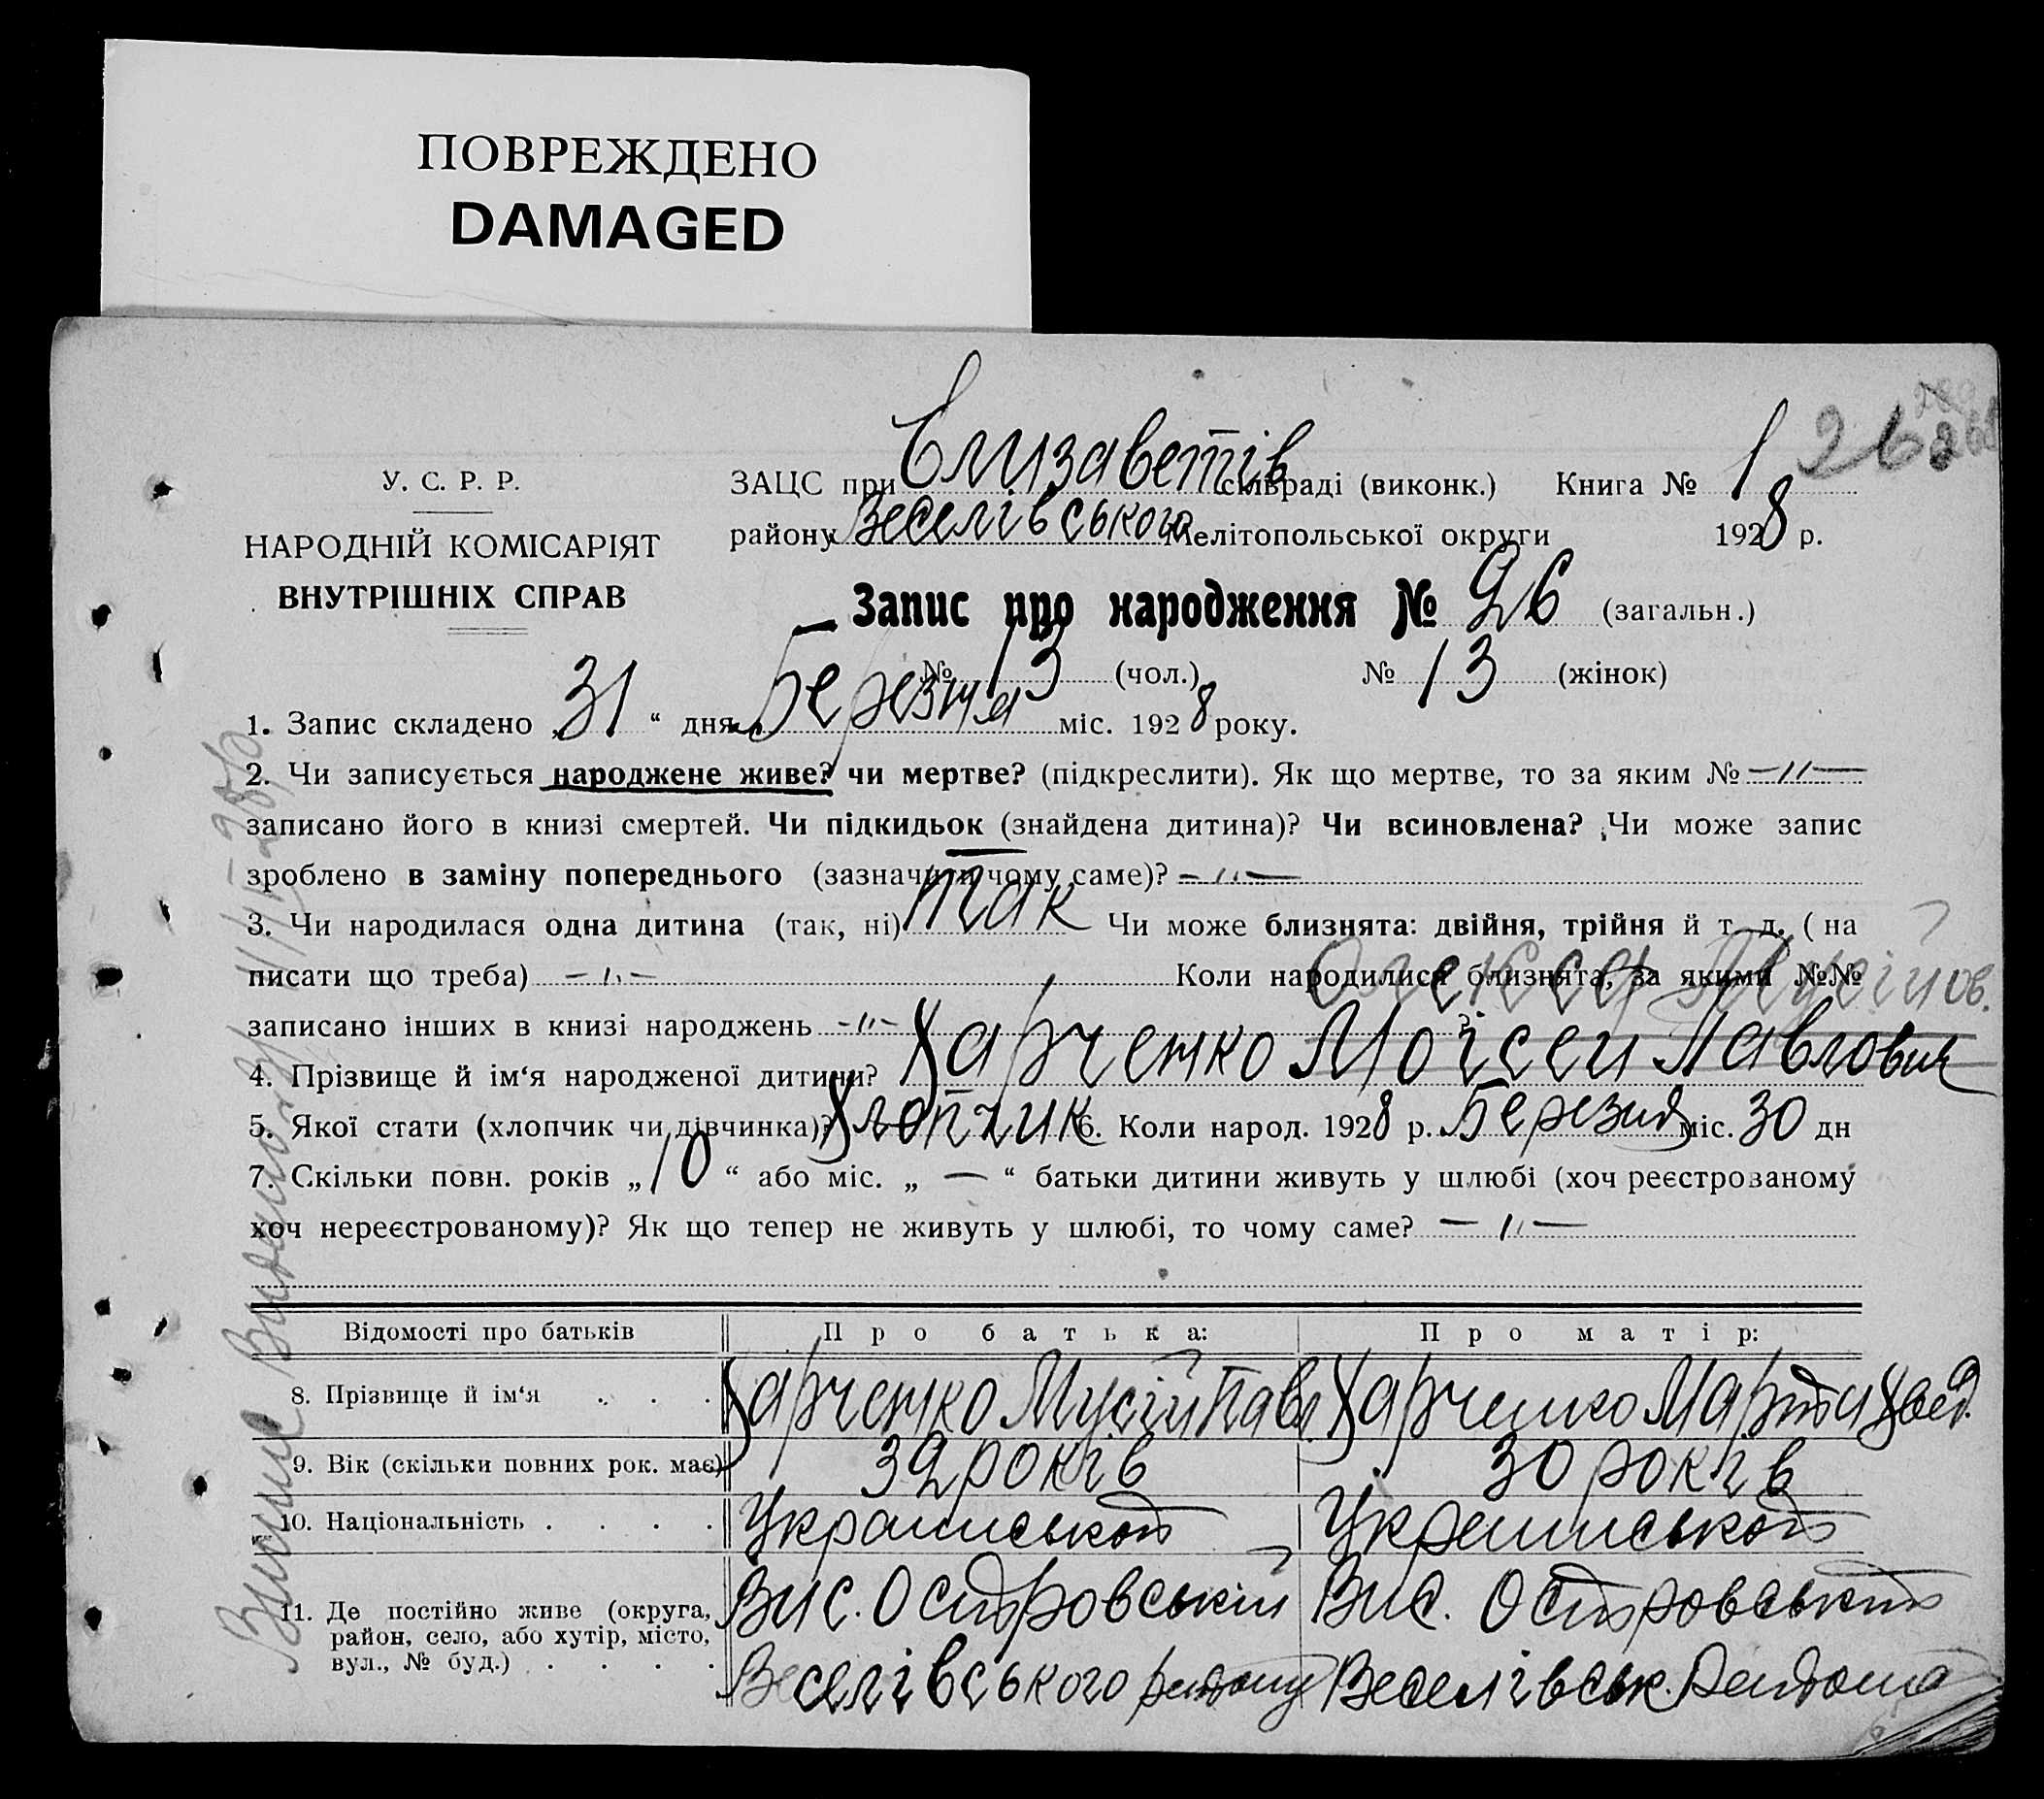 ПОВРЕЖДЕНО
DAMAGED
У. С. Р. Р.
НАРОДНІЙ КОМІСАРІЯТ
ВНУТРІШНІХ СПРАВ
ЗАЦС при Єлизаветів сільраді (виконк.) Книга № 1
району Веселівського Мелітопольської округи 1928 р.
Запис про народження № 26 (загальн.)
№ 13 (чол.) № 13 (жінок)
1. Запис складено „31“ дня Березня міс. 1928 року.
2. Чи записується народжене живе? чи мертве? (підкреслити). Як що мертве, то за яким № —"—
записано його в книзі смертей. Чи підкидьок (знайдена дитина)? Чи всиновлена? Чи може запис
зроблено в заміну попереднього (зазначити чому саме)? —"—
3. Чи народилася одна дитина (так, ні) Так Чи може близнята: двійня, трійня й т. д. (на
писати що треба) —"— Коли народилися близнята, за якими №№
записано інших в книзі народжень —"—
Олексій Мусійов.
4. Прізвище й ім‘я народженої дитини? Харченко Моісей Павлович
5. Якої стати (хлопчик чи дівчинка)? Хлопчик 6. Коли народ. 1928 р. Березня міс. 30 дн
7. Скільки повн. років „10“ або міс. „—“ батьки дитини живуть у шлюбі (хоч реєстрованому
хоч нереєстрованому)? Як що тепер не живуть у шлюбі, то чому саме? —"—
Відомості про батьків Про батька: Про матір:
8. Прізвище й ім‘я . . . Харченко Мусій Павл. Харченко Марта
9. Вік (скільки повних рок. має) 32 років 30 років
10. Національність . . . . Української Української
11. Де постійно живе (округа,
район, село, або хутір, місто,
вул., № буд.) . . . .
Вис. Островський Вис. Островський
Веселівського району Веселівськ. району